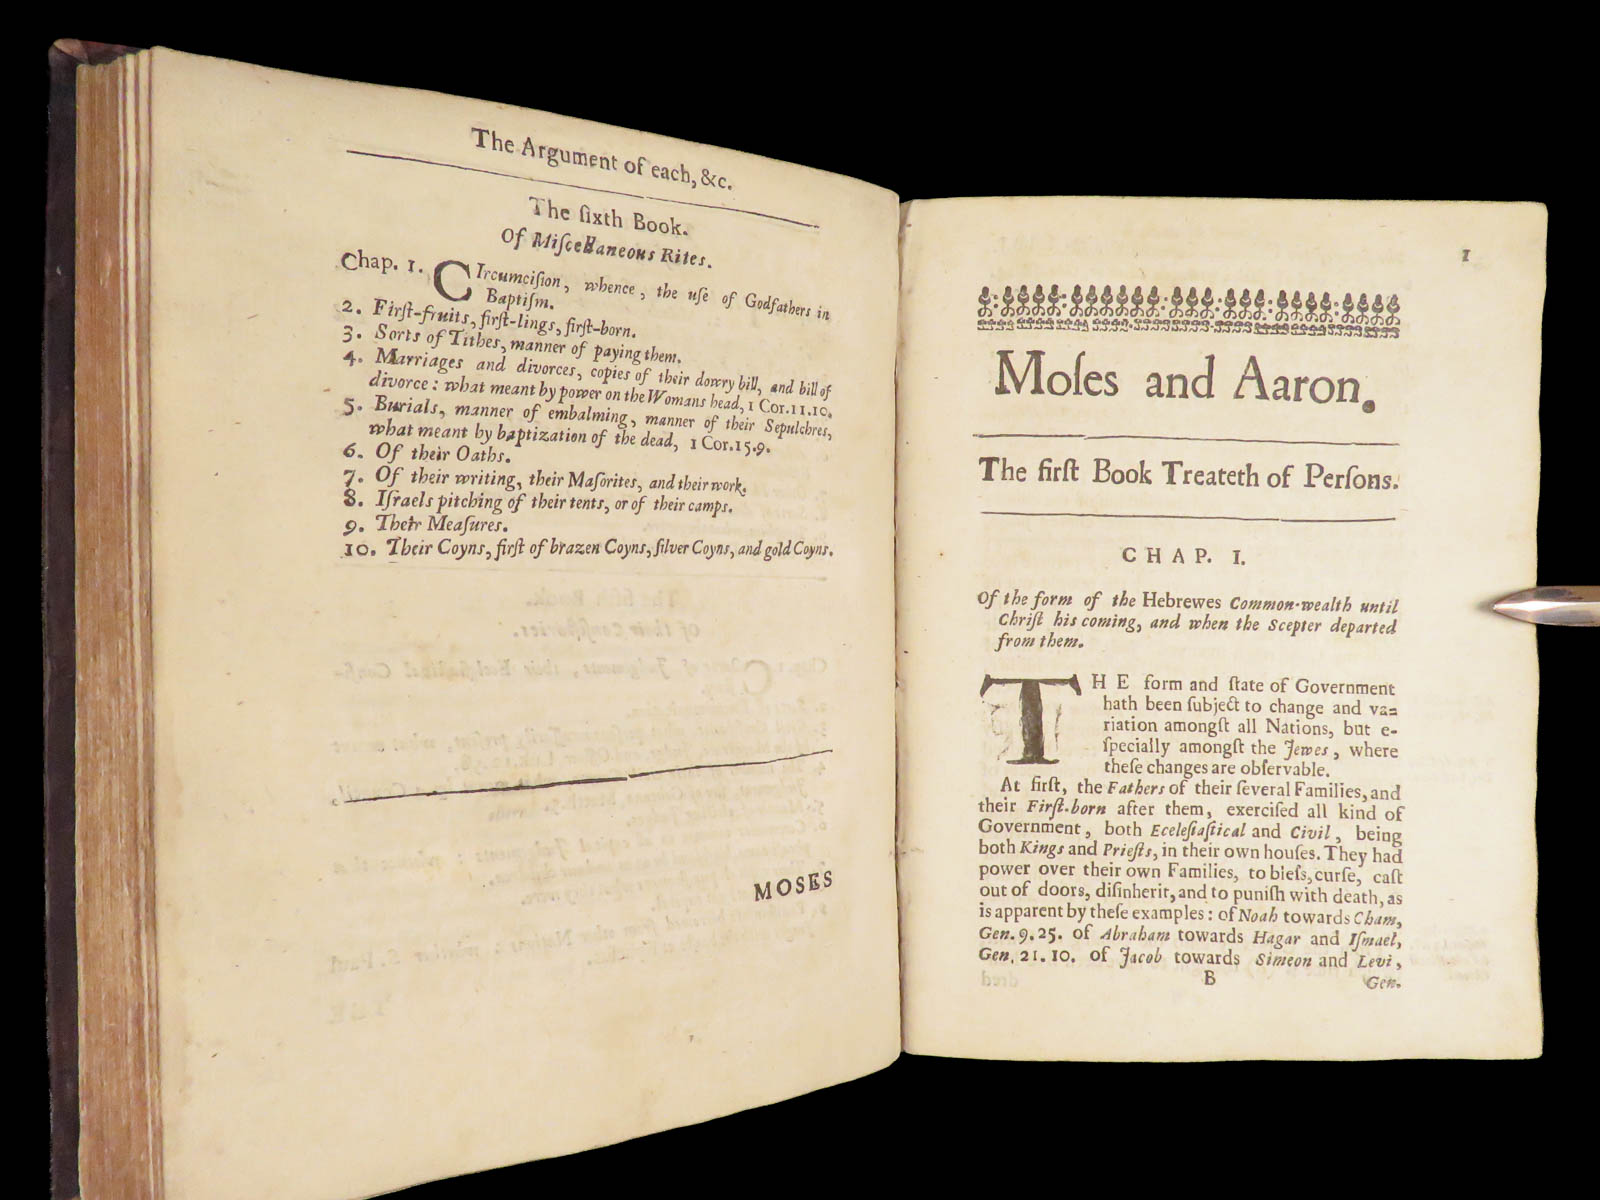 The Argument of each, &c.
The ſixth Book.
Of Miſcellaneous Rites.
Chap. 1. CIrcumciſion, whence, the uſe of Godfathers in
Baptiſm.
2. Firſt-fruits, firſt-lings, firſt-born.
3. Sorts of Tithes, manner of paying them.
4. Marriages and divorces, copies of their dowry bill, and bill of
divorce: what meant by power on the Womans head, 1 Cor. 11. 10.
5. Burials, manner of embalming, manner of their Sepulchres,
what meant by baptization of the dead, 1 Cor. 15. 9.
6. Of their Oaths.
7. Of their writing, their Maſorites, and their work.
8. Iſraels pitching of their tents, or of their camps.
9. Their Meaſures.
10. Their Coyns, firſt of brazen Coyns, ſilver Coyns, and gold Coyns.
MOSES
1
Moſes and Aaron.
The firſt Book Treateth of Perſons.
CHAP. I.
Of the form of the Hebrewes Common-wealth until
Chriſt his coming, and when the Scepter departed
from them.
THE form and ſtate of Government
hath been ſubject to change and va=
riation amongſt all Nations, but e-
ſpecially amongſt the Jewes, where
theſe changes are obſervable.
At firſt, the Fathers of their ſeveral Families, and
their Firſt-born after them, exerciſed all kind of
Government, both Eceleſiaſtical and Civil, being
both Kings and Prieſts, in their own houſes. They had
power over their own Families, to bleſs, curſe, caſt
out of doors, diſinherit, and to puniſh with death, as
is apparent by theſe examples: of Noah towards Cham,
Gen. 9. 25. of Abraham towards Hagar and Iſmael,
Gen. 21. 10. of Jacob towards Simeon and Levi,
B Gen.